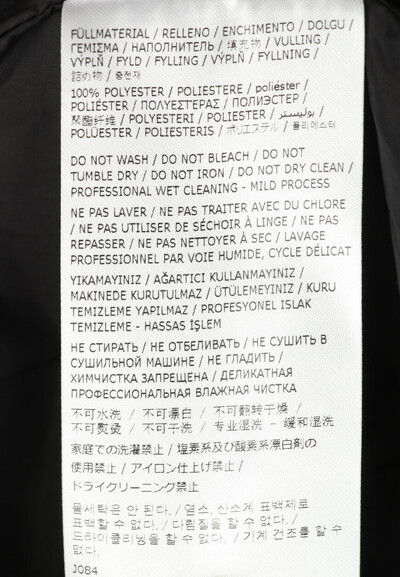 FÜLLMATERIAL / RELLENO / ENCHIMENTO / DOLGU /
ΓΕΜΙΣΜΑ / НАПОЛНИТЕЛЬ / 填充物 / VULLING /
VÝPLŇ / FYLD / FYLLING / VÝPLŇ / FYLLNING /
詰め物 / 충전재
100% POLYESTER / POLIESTERE / poliéster /
POLIÉSTER / ΠΟΛΥΕΣΤΕΡΑΣ / ПОЛИЭСТЕР /
聚酯纤维 / POLYESTERI / POLIESTER / بوليستر /
POLÜESTER / POLIESTERIS / ポリエステル / 폴리에스터
DO NOT WASH / DO NOT BLEACH / DO NOT
TUMBLE DRY / DO NOT IRON / DO NOT DRY CLEAN /
PROFESSIONAL WET CLEANING - MILD PROCESS
NE PAS LAVER / NE PAS TRAITER AVEC DU CHLORE
/ NE PAS UTILISER DE SÉCHOIR À LINGE / NE PAS
REPASSER / NE PAS NETTOYER À SEC / LAVAGE
PROFESSIONNEL PAR VOIE HUMIDE, CYCLE DÉLICAT
YIKAMAYINIZ / AĞARTICI KULLANMAYINIZ /
MAKINEDE KURUTULMAZ / ÜTÜLEMEYINIZ / KURU
TEMIZLEME YAPILMAZ / PROFESYONEL ISLAK
TEMIZLEME - HASSAS İŞLEM
НЕ СТИРАТЬ / НЕ ОТБЕЛИВАТЬ / НЕ СУШИТЬ В
СУШИЛЬНОЙ МАШИНЕ / НЕ ГЛАДИТЬ /
ХИМЧИСТКА ЗАПРЕЩЕНА / ДЕЛИКАТНАЯ
ПРОФЕССИОНАЛЬНАЯ ВЛАЖНАЯ ЧИСТКА
不可水洗 / 不可漂白 / 不可翻转干燥 /
不可熨烫 / 不可干洗 / 专业湿洗 - 缓和湿洗
家庭での洗濯禁止 / 塩素系及び酸素系漂白剤の
使用禁止 / アイロン仕上げ禁止 /
ドライクリーニング禁止
물세탁은 안 된다. / 염소, 산소계 표백제로
표백할 수 없다. / 다림질을 할 수 없다. /
드라이클리닝을 할 수 없다. / 기계 건조를 할 수
없다.
JOB4